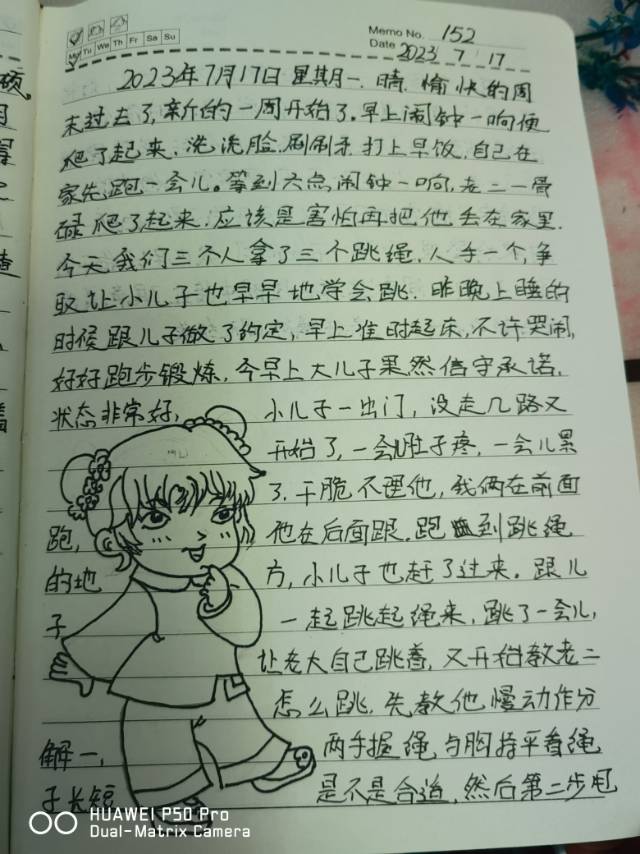 Memo No. 152
Mo Tu We Th Fr Sa Su
Date 2023 7 17
2023年7月17日 星期一. 晴. 愉快的周
末过去了,新的一周开始了。早上闹钟一响便
爬了起来,洗洗脸.刷刷牙.打上早饭,自己在
家先跑一会儿。等到六点闹钟一响,老二一骨
碌爬了起来.应该是害怕再把他丢在家里.
今天我们三个人拿了三个跳绳,人手一个,争
取让小儿子也早早地学会跳.昨晚上睡的
时候跟儿子做了约定,早上准时起床,不许哭闹,
好好跑步锻炼,今早上大儿子果然信守承诺,
状态非常好, 小儿子一出门,没走几路又
开始了,一会儿肚子疼,一会儿累
了.干脆不理他,我俩在前面
跑, 他在后面跟.跑到跳绳
的地 方,小儿子也赶了过来。跟儿
子 一起跳起绳来,跳了一会儿,
让老大自己跳着,又开始教老二
怎么跳.先教他慢动作分
解一, 两手握绳,与胸持平看绳
子长短 是不是合适,然后第二步甩
HUAWEI P50 Pro
Dual-Matrix Camera